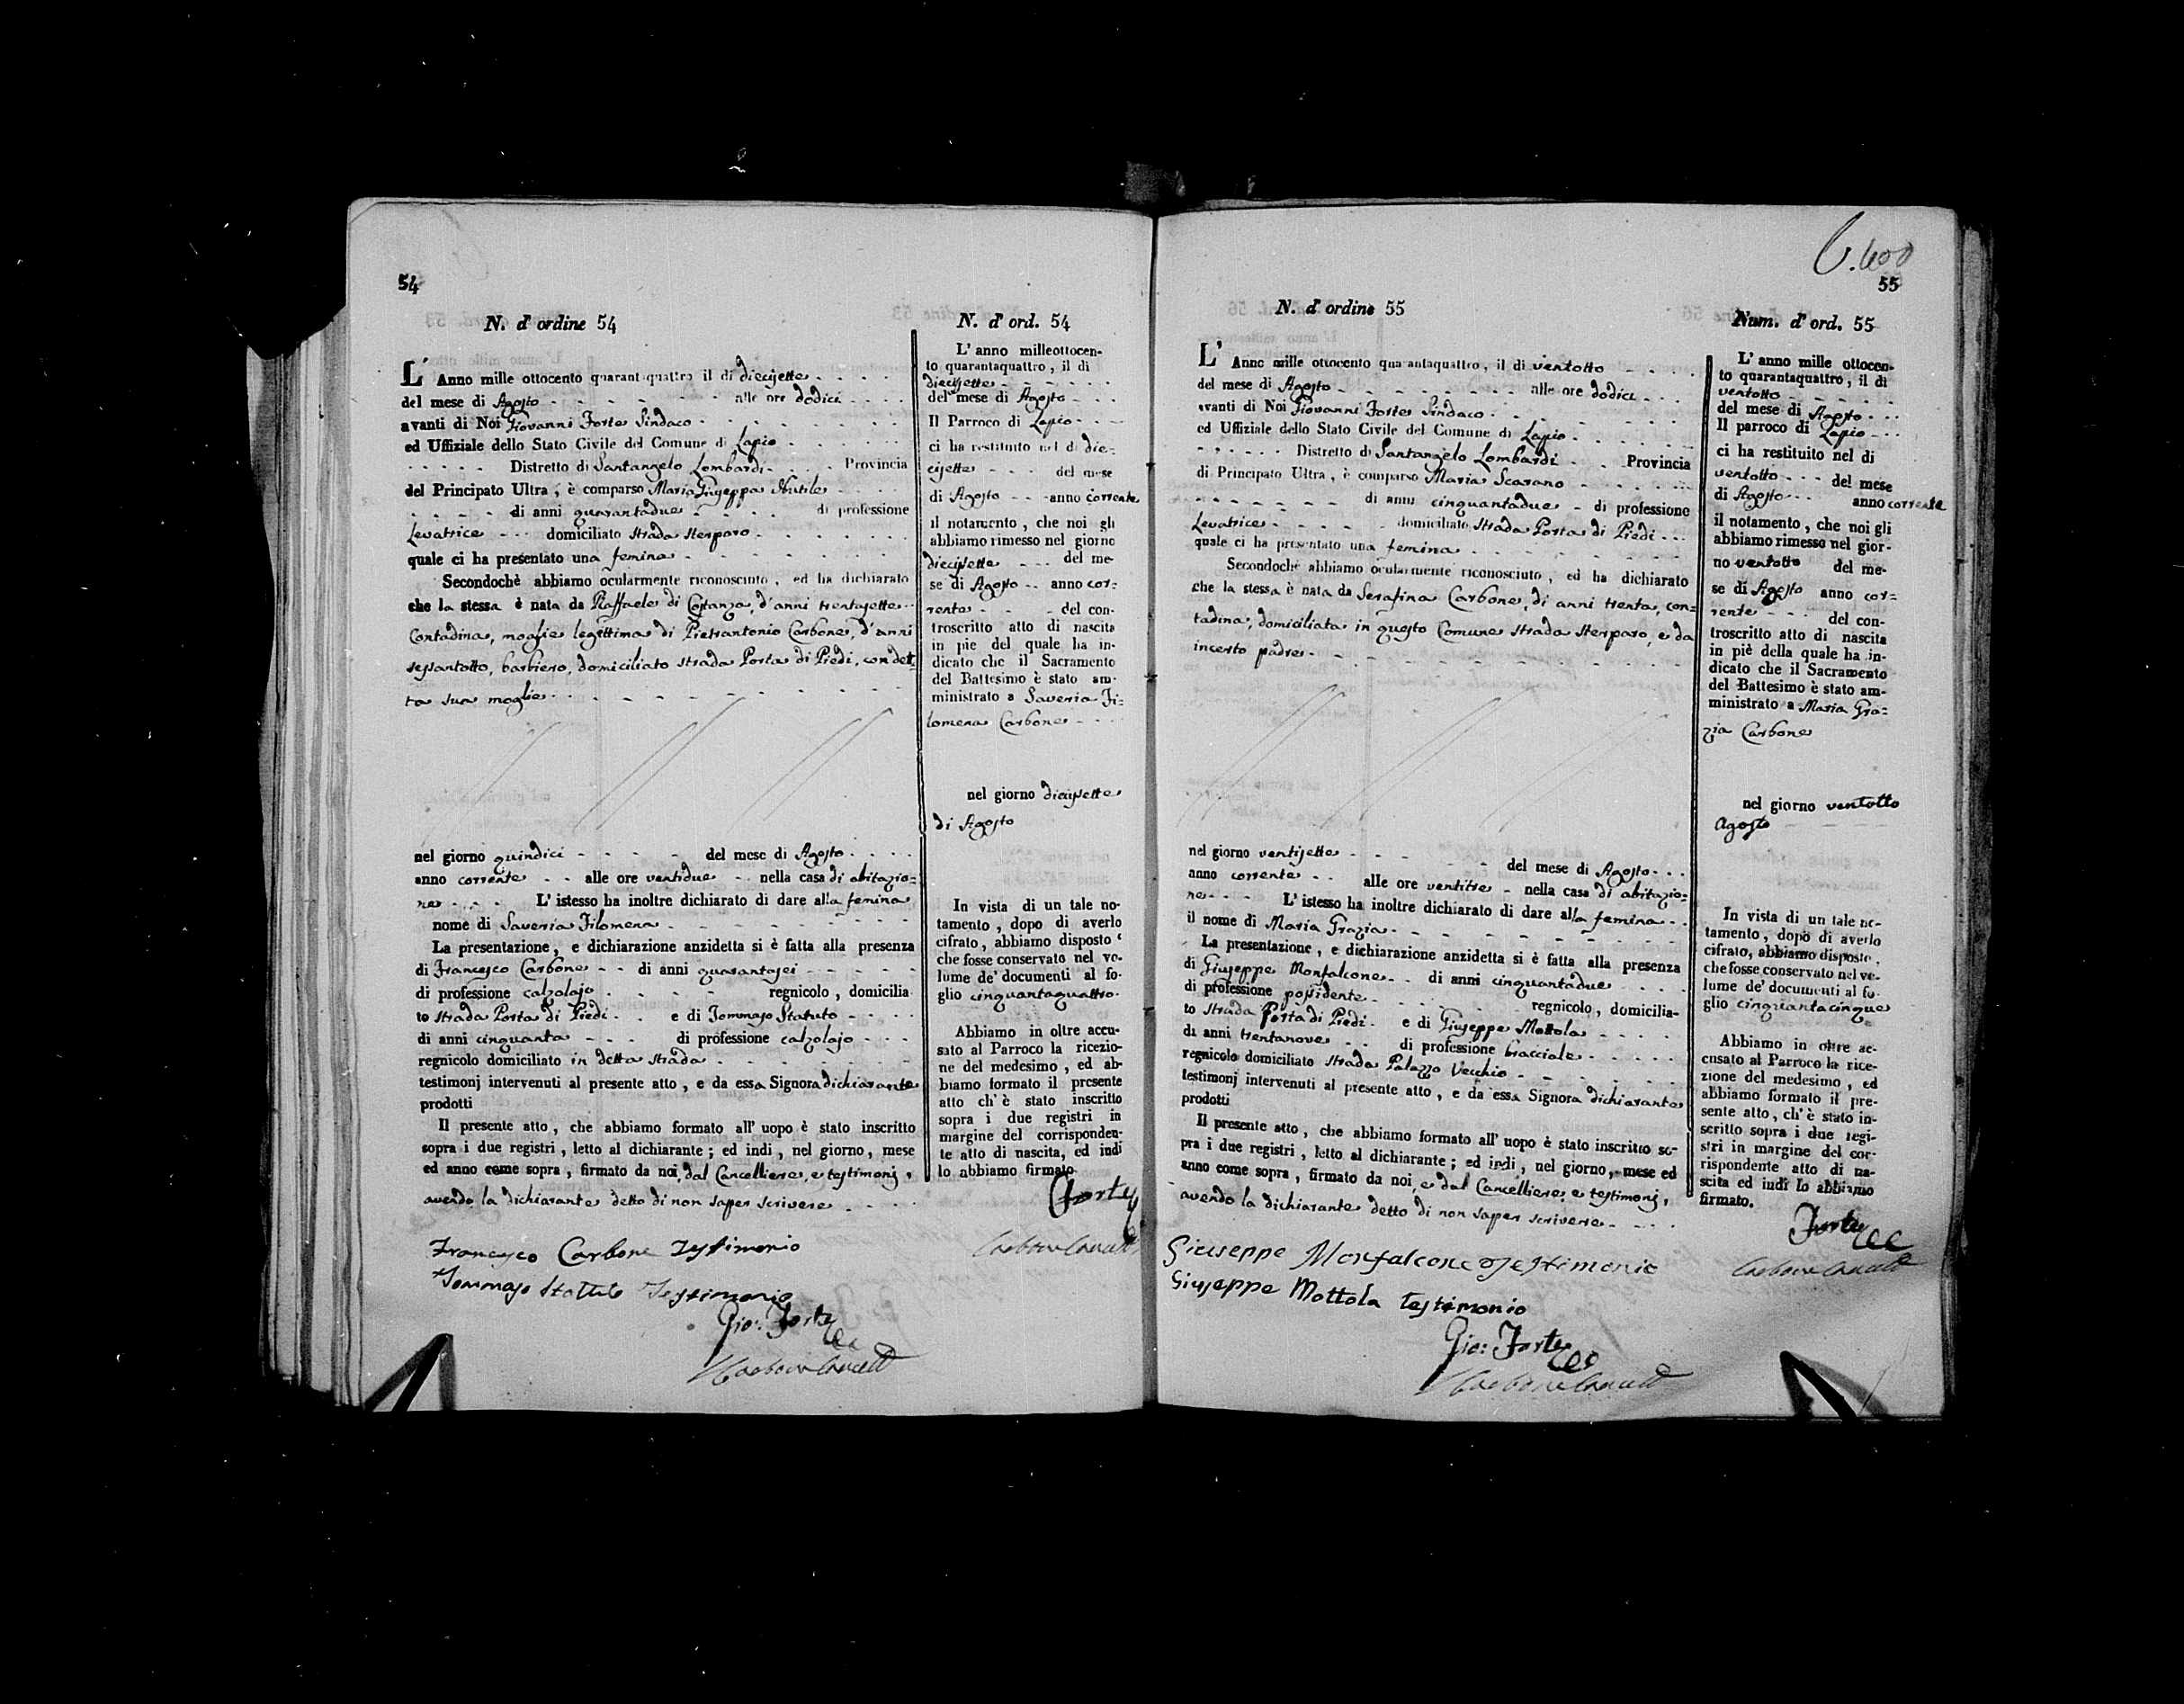 54
N. d' ordine 54
L' Anno mille ottocento quarantaquattro il di diecisette
del mese di Agosto alle ore dodici
avanti di Noi Giovanni Forte Sindaco
ed Uffiziale dello Stato Civile del Comune di Lapio
Distretto di Santangelo Lombardi Provincia
del Principato Ultra, è comparso Maria Giuseppa
di anni quarantadue di professione
Levatrice domiciliato Strada Sterparo
quale ci ha presentato una femina
Secondochè abbiamo ocularmente riconosciuto, ed ha dichiarato
che la stessa è nata da Raffaele di Costanza, d'anni trentasette
Contadina, moglie legittima di Pietrantonio Carbone, d'anni
sessantotto, barbiero, domiciliato Strada Porta di Piedi, con det-
ta sua moglie
nel giorno quindici del mese di Agosto
anno corrente alle ore ventidue nella casa di abitazio=
ne L' istesso ha inoltre dichiarato di dare alla femina
nome di Saveria Filomena
La presentazione, e dichiarazione anzidetta si è fatta alla presenza
di Francesco Carbone di anni quarantasei
di professione calzolajo regnicolo, domicilia
to Strada Porta di Piedi e di Tommaso Statuto
di anni cinquanta di professione calzolajo
regnicolo domiciliato in detta Strada
testimonj intervenuti al presente atto, e da essa Signora dichiarante
prodotti
Il presente atto, che abbiamo formato all' uopo è stato inscritto
sopra i due registri, letto al dichiarante; ed indi, nel giorno, mese
ed anno come sopra, firmato da noi, dal Cancelliere, e testimonj,
avendo la dichiarante detto di non saper scrivere
Francesco Carbone Testimonio
Tommaso Statuto Testimonio
Gio: Forte
Carbone Cancell
N. d' ord. 54
L' anno milleottocen-
to quarantaquattro, il di
diecisette
del mese di Agosto
Il Parroco di Lapio
ci ha restituito nel di die-
cisette del mese
di Agosto anno corrente
il notamento, che noi gli
abbiamo rimesso nel giorno
diecisette del me-
se di Agosto anno cor=
rente del con-
troscritto atto di nascita
in piè del quale ha in-
dicato che il Sacramento
del Battesimo è stato am-
ministrato a Saveria Fi=
lomena Carbone
nel giorno diecisette
di Agosto
In vista di un tale no-
tamento, dopo di averlo
cifrato, abbiamo disposto
che fosse conservato nel vo-
lume de' documenti al fo-
glio cinquantaquattro
Abbiamo in oltre accu-
sato al Parroco la ricezio-
ne del medesimo, ed ab-
biamo formato il presente
atto ch' è stato inscritto
sopra i due registri in
margine del corrisponden-
te atto di nascita, ed indi
lo abbiamo firmato
Forte
Carbone Cancell
55
N. d' ordine 55
L' Anno mille ottocento quarantaquattro, il di ventotto
del mese di Agosto alle ore dodici
avanti di Noi Giovanni Forte Sindaco
ed Uffiziale dello Stato Civile del Comune di Lapio
Distretto di Santangelo Lombardi Provincia
di Principato Ultra, è comparso Maria Scarano
di anni cinquantadue di professione
Levatrice domiciliato Strada Porta di Piedi
quale ci ha presentato una femina
Secondochè abbiamo ocularmente riconosciuto, ed ha dichiarato
che la stessa è nata da Serafina Carbone, di anni trenta, con=
tadina, domiciliata in questo Comune Strada Sterparo, e da
incerto padre
nel giorno ventisette del mese di Agosto
anno corrente alle ore ventitre nella casa di abitazio=
ne L' istesso ha inoltre dichiarato di dare alla femina
il nome di Maria Grazia
La presentazione, e dichiarazione anzidetta si è fatta alla presenza
di Giuseppe Monfalcone di anni cinquantadue
di professione possidente regnicolo, domicilia-
to Strada Porta di Piedi e di Giuseppe Mottola
di anni trentanove di professione bracciale
regnicolo domiciliato Strada Palazzo Vecchio
testimonj intervenuti al presente atto, e da essa Signora dichiarante
prodotti
Il presente atto, che abbiamo formato all' uopo è stato inscritto so-
pra i due registri, letto al dichiarante; ed indi, nel giorno, mese ed
anno come sopra, firmato da noi, e dal Cancelliere, e testimonj,
avendo la dichiarante detto di non saper scrivere
Giuseppe Monfalcone Testimonio
Giuseppe Mottola testimonio
Gio: Forte
Carbone Cancell
Num. d' ord. 55
L' anno mille ottocen-
to quarantaquattro, il di
ventotto
del mese di Agosto
Il parroco di Lapio
ci ha restituito nel di
ventotto del mese
di Agosto anno corrente
il notamento, che noi gli
abbiamo rimesso nel gior-
no ventotto del me-
se di Agosto anno cor=
rente del con-
troscritto atto di nascita
in piè della quale ha in-
dicato che il Sacramento
del Battesimo è stato am-
ministrato a Maria Gra=
zia Carbone
nel giorno ventotto
Agosto
In vista di un tale no-
tamento, dopo di averlo
cifrato, abbiamo disposto,
che fosse conservato nel vo-
lume de' documenti al fo-
glio cinquantacinque
Abbiamo in oltre ac-
cusato al Parroco la rice-
zione del medesimo, ed
abbiamo formato il pre-
sente atto, ch' è stato in-
scritto sopra i due regi-
stri in margine del cor-
rispondente atto di na-
scita ed indi lo abbiamo
firmato.
Forte
Carbone Cancell